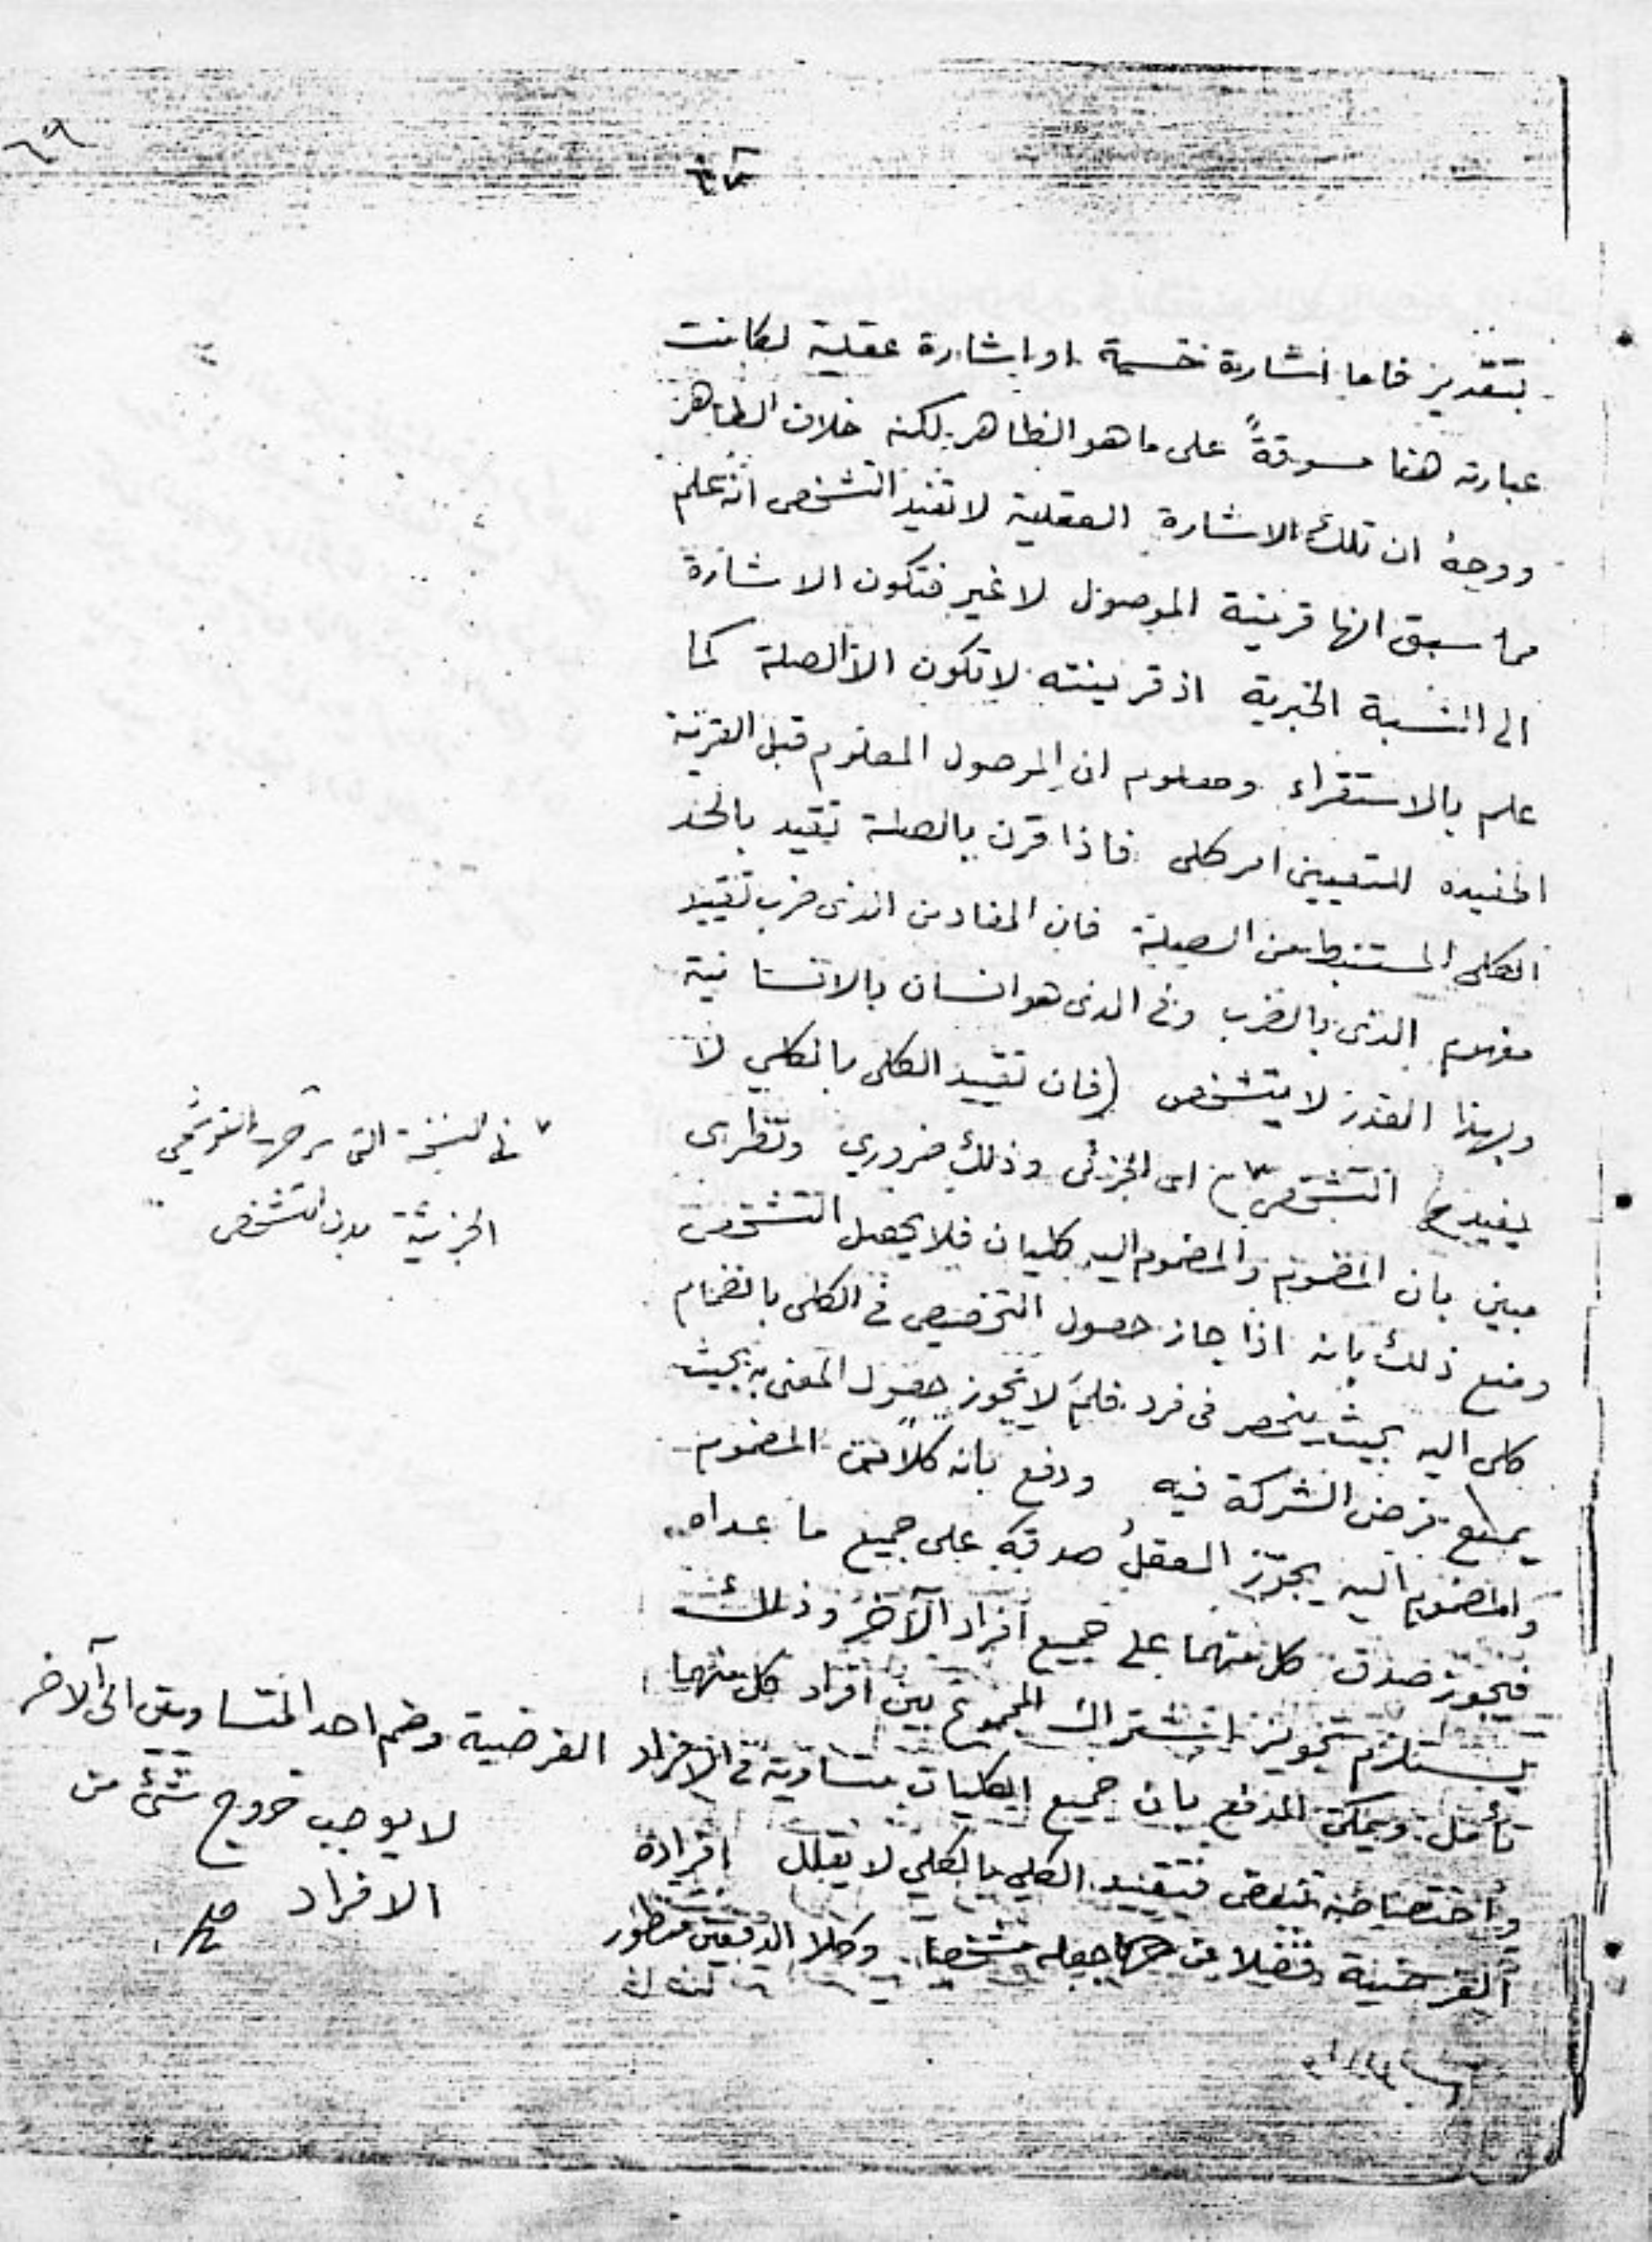 ٦٩
بتقدير فاما اشارة حسية او اشارة عقلية لكانت
عبارته هنا مسوقةً على ما هو الظاهر لكنه خلاف الظاهر
ووجهُ ان تلك الاشارة العقلية لا تفيد التشخص انه علم
مما سبق انها قرينة الموصول لا غير فتكون الاشارة
الى النسبة الخبرية اذ قرينته لا تكون الا الصلة كما
علم بالاستقراء ومعلوم ان الموصول المعلوم قبل القرينة
المفيده للتعيين امر كلى فاذا قرن بالصلة تقيد بالحد
الكلى المستنبط من الصلة فان المفاد من الذى ضرب تقييد
مفهوم الذى بالضرب وفى الذى هو انسان بالانسانية
وبهذا القدر لا يتشخص (فان تقييد الكلى بالكلي لا
يفيد التشخص ٧) اى الجزئى وذلك ضروري ونظرى
مبين بان المضموم والمضموم اليه كليان فلا يحصل التشخص
ومنع ذلك بانه اذا جاز حصول التخصيص فى الكلى بانضمام
كلى اليه بحيث ينحصر فى فرد فلمَ لا يجوز حصول المعنى به بحيث
يمنع فرض الشركة فيه ودفع بانه كلاً من المضموم
والمضموم اليه يجوّز العقلُ صدقه على جميع ما عداه
فيجوز صدق كل منهما على جميع افراد الآخر وذلك
يستلزم تجويز اشتراك المجموع بين افراد كل منهما
تأمل ويمكن الدفع بان جميع الكليات متساوية فى الافراد الفرضية وضم احد المتساويين الى الآخر
لا يوجب خروج شئ من
الافراد
فتقييد الكلي بالكلي لا يقلل افراده
الفرضية فضلا عن جعله مشخصا وكلا الدفعين منظور
٧ فى النسخة التى شرحها القوشجي
الجزئية بدل التشخص